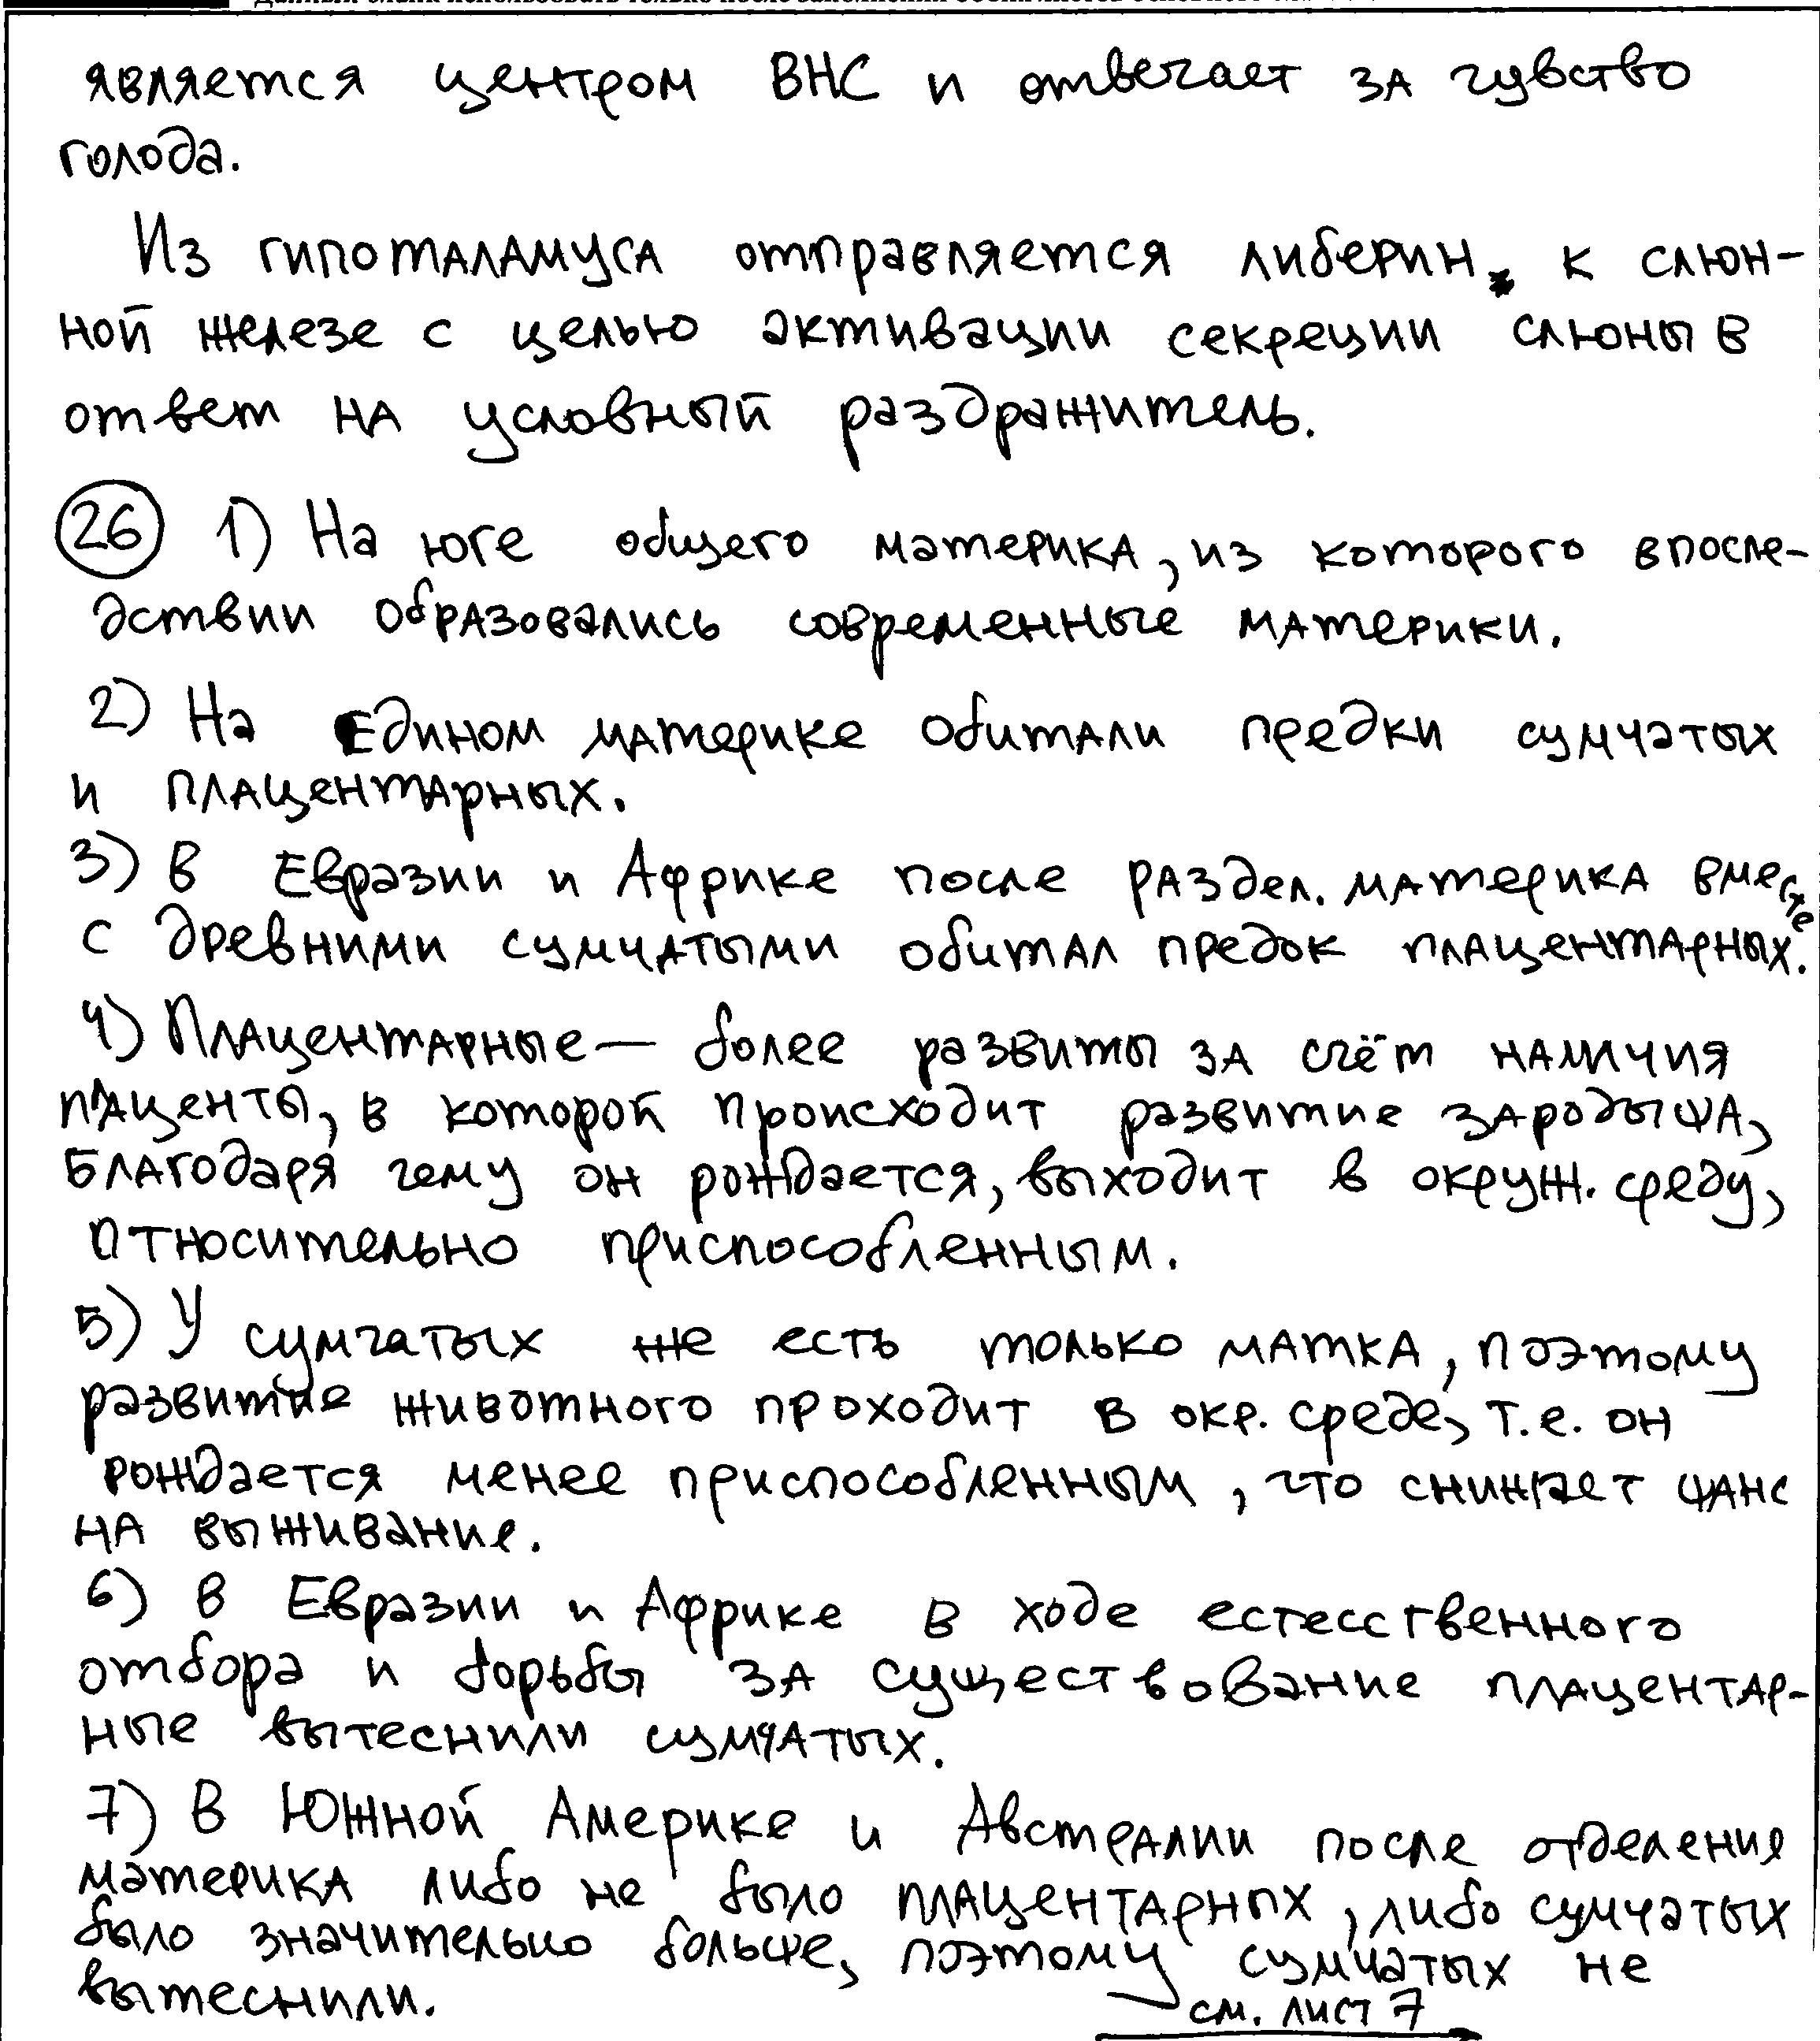 является центром ВНС и отвечает за чувство
голода.
Из гипоталамуса отправляется либерин к слюн-
ной железе с целью активации секреции слюны в
ответ на условный раздражитель.
26 1) На юге общего материка, из которого впосле-
дствии образовались современные материки.
2) На едином материке обитали предки сумчатых
и плацентарных.
3) В Евразии и Африке после раздел. материка вместе
с древними сумчатыми обитал предок плацентарных.
4) Плацентарные — более развиты за счёт наличия
плаценты, в которой происходит развитие зародыша,
благодаря чему он рождается, выходит в окруж. среду,
относительно приспособленным.
5) У сумчатых же есть только матка, поэтому
развитие животного проходит в окр. среде, т.е. он
рождается менее приспособленным, что снижает шанс
на выживание.
6) В Евразии и Африке в ходе естесственного
отбора и борьбы за существование плацентар-
ные вытеснили сумчатых.
7) В Южной Америке и Австралии после отделения
материка либо не было плацентарных, либо сумчатых
было значительно больше, поэтому сумчатых не
вытеснили.
см. лист 7